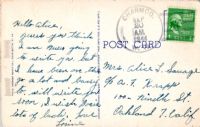 Hello Alice,
Guess you think
I am never going
to write you but
I have been on the
go a lot and busy
to, will write you
soon. I wish you
lots of luck. Love
Louise
POST CARD
MAY
AM
Mrs. Alice L. Savage
% A. F. Knapp
Ninth St
Oakland 7. Calif